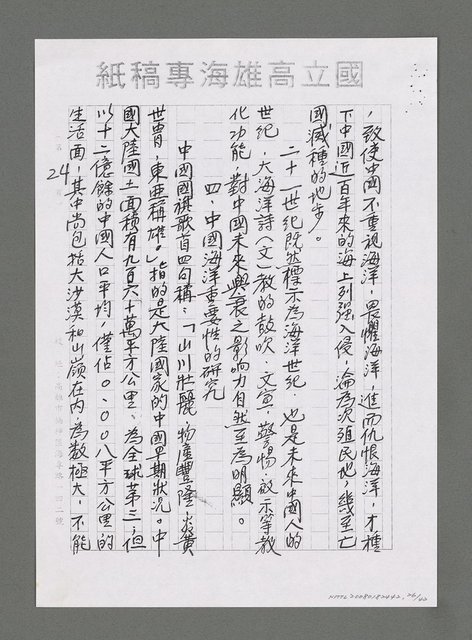 國立高雄海專稿紙
，致使中國不重視海洋，畏懼海洋，進而仇恨海洋，才種
下中國近百年來的海上列強入侵，淪為次殖民地，幾至亡
國滅種的地步。
二十一世紀既然標示為海洋世紀，也是未來中國人的
世紀，大海洋詩（文）教的鼓吹、文宣、警惕、啟示等教
化功能，對中國未來興衰之影響力自然至為明顯。
四、中國海洋重要性的研究
中國國旗歌首四句稱：「山川壯麗，物產豐隆，炎黃
世胄，東亞稱雄。」指的是大陸國家的中國早期狀況。中
國大陸國土面積有九百六十萬平方公里，為全球第三，但
以十二億餘的中國人口平均，僅佔0.00八平方公里的
生活面，其中尚包括大沙漠和山嶺在內，為數極大，不能
24
NMTL20080182442, 26/42